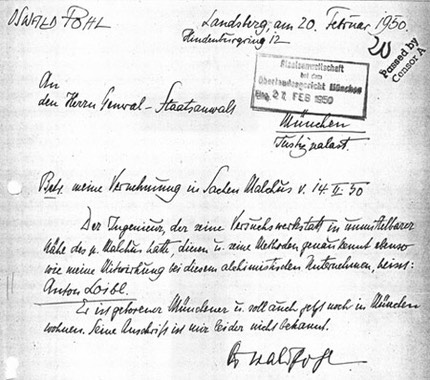 OSWALD POHL
Landsberg, am 20. Februar 1950.
Hindenburgring 12
20
Passed by
Censor A
Staatsanwaltschaft
bei dem
Oberlandesgericht München
Eing. 27. FEB 1950
An
den Herrn General-Staatsanwalt
München
Justizpalast.
Betr. meine Vernehmung in Sachen Malchus v. 14. II. 50
Der Ingenieur, der eine Versuchswerkstatt in unmittelbarer
Nähe des p. Malchus hatte, diesen u. seine Methoden genau kennt ebenso
wie meine Mitwirkung bei diesem alchimistischen Unternehmen, heisst:
Anton Loibl.
Er ist geborener Münchener u. soll auch jetzt noch in München
wohnen. Seine Anschrift ist mir leider nicht bekannt.
Oswald Pohl